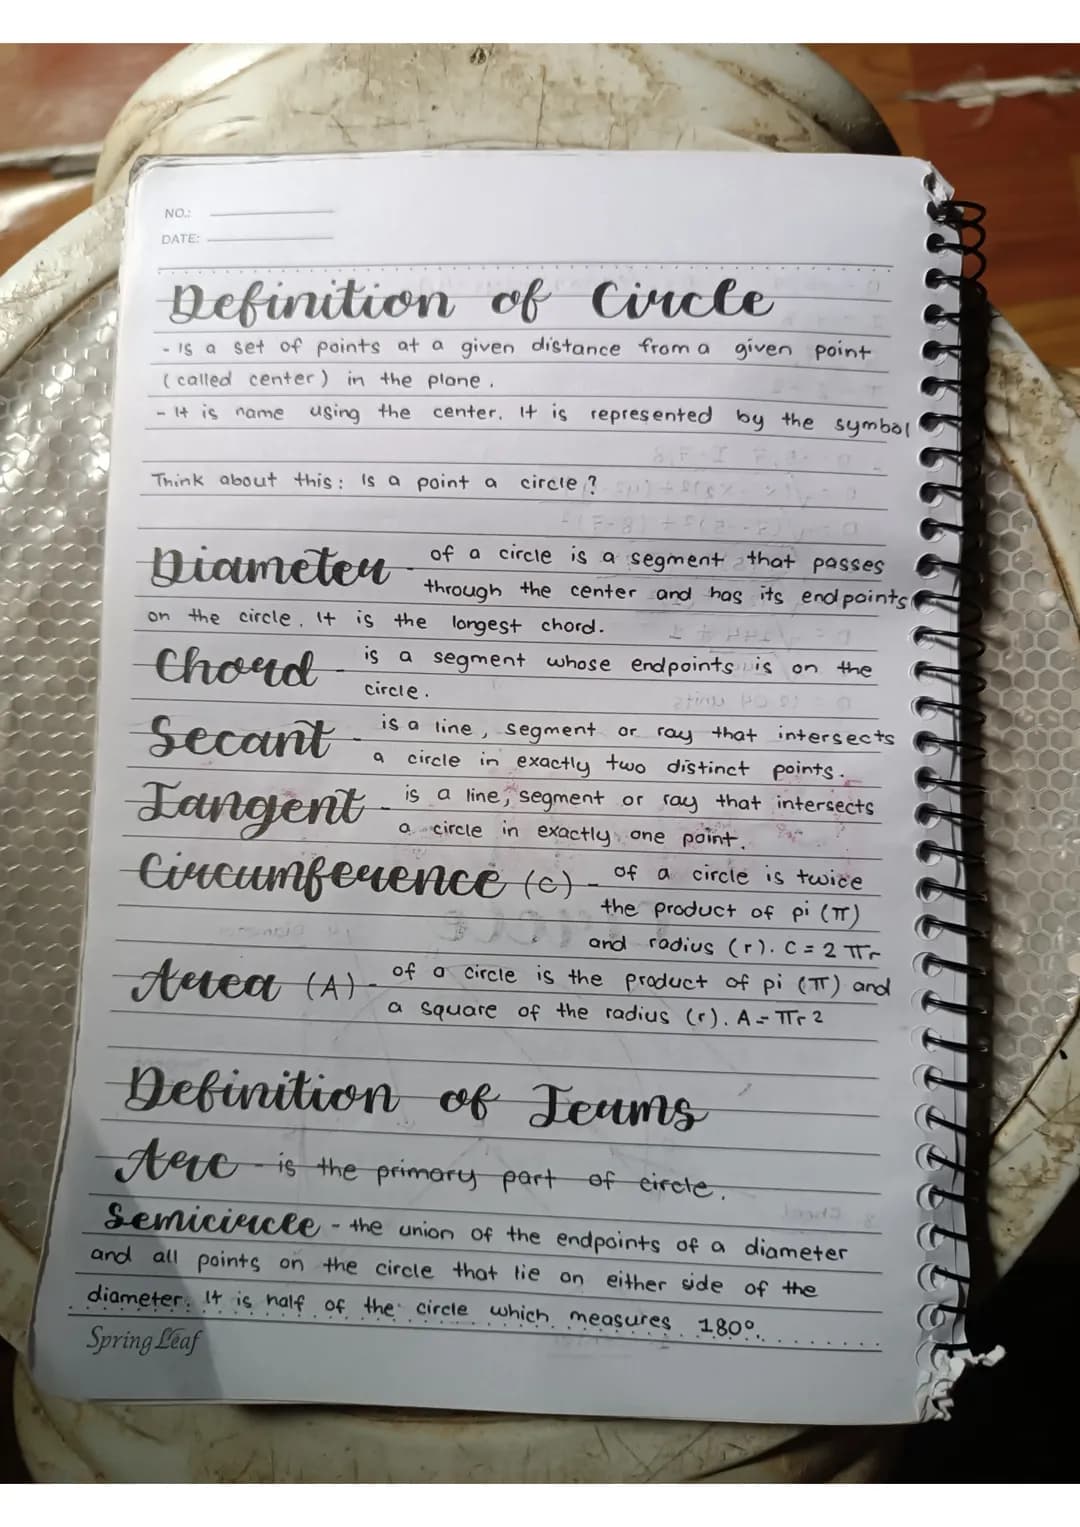 NO.:
DATE:
Definition of Circle
- Is a set of points at a given distance from a given point
(called center) in the plane.
- It is name using the center. It is represented by the symbol
Think about this: Is a point a circle?
Diameter - of a circle is a segment that passes
through the center and has its endpoints
on the circle. It is the longest chord.
Chord - is a segment whose endpoints is on the
circle.
Secant - is a line, segment or ray that intersects
a circle in exactly two distinct points.
Tangent - is a line, segment or ray that intersects
a circle in exactly one point.
Circumference (C) - of a circle is twice
the product of pi (π)
and radius (r). C = 2 πr
Area (A) - of a circle is the product of pi (π) and
a square of the radius (r). A = πr2
Definition of Terms
Arc - is the primary part of circle.
Semicircle - the union of the endpoints of a diameter
and all points on the circle that lie on either side of the
diameter. It is half of the circle which measures 180°.
Spring Leaf